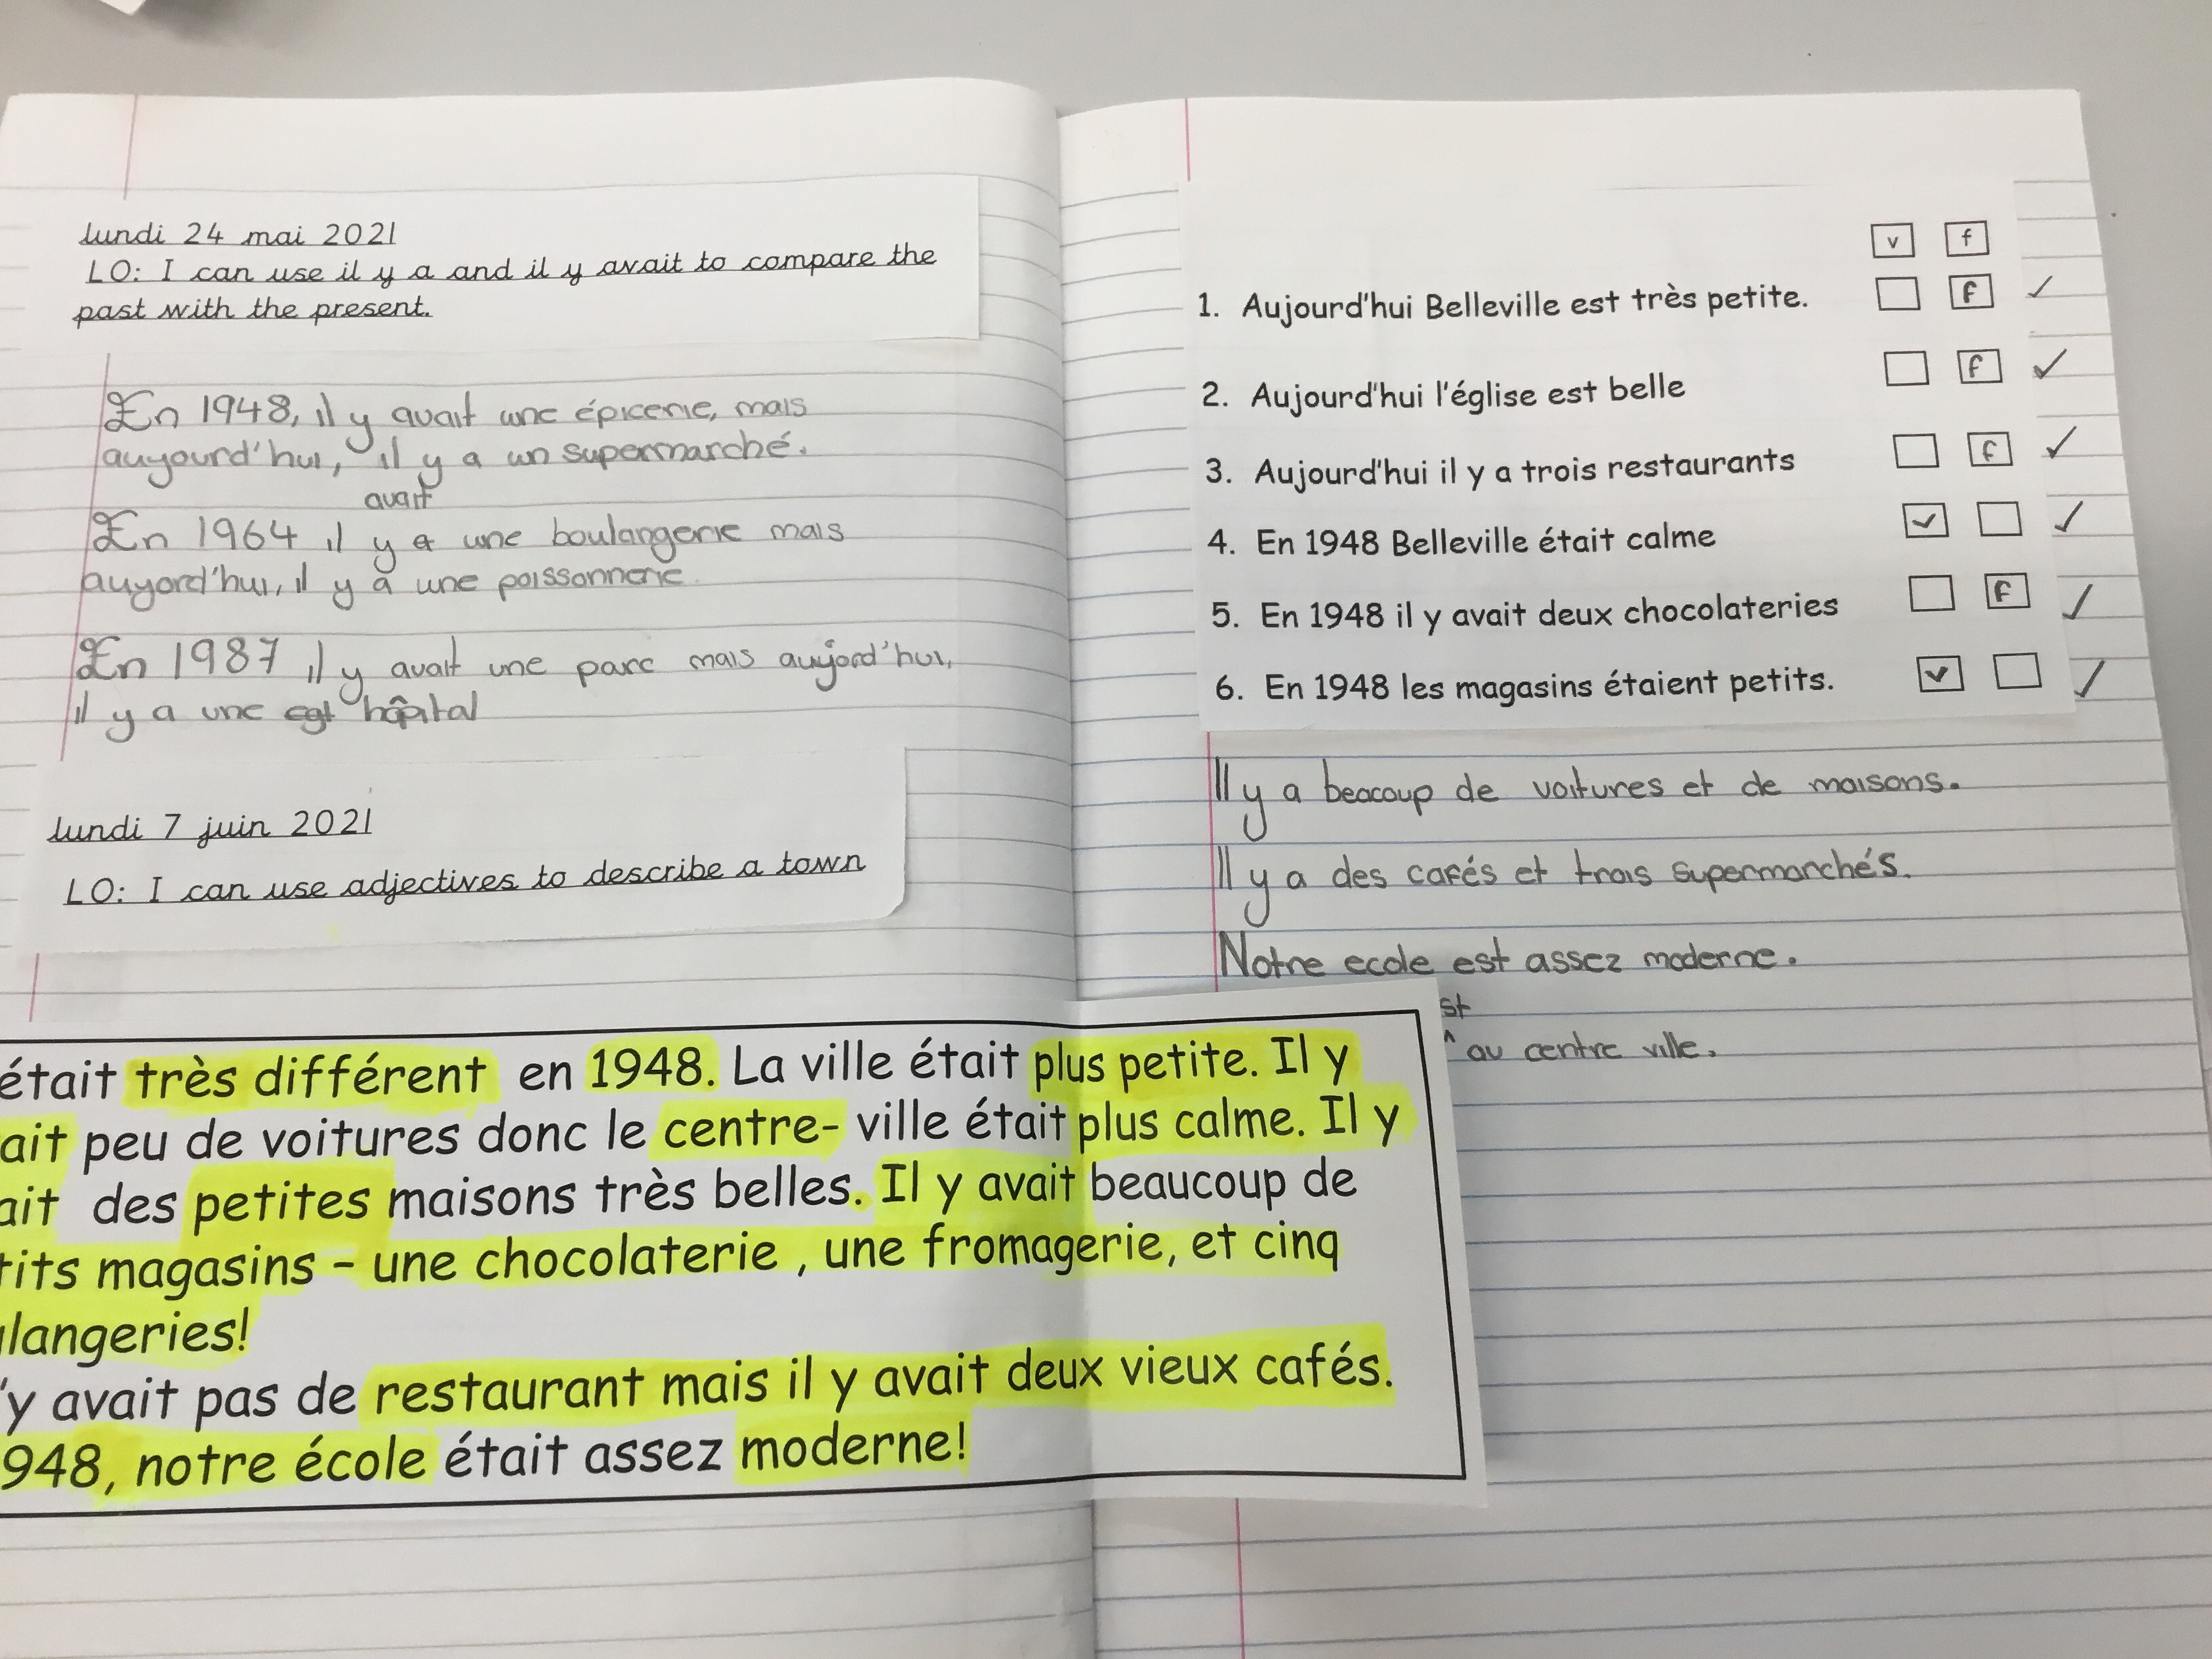 lundi 24 mai 2021
LO: I can use il y a and il y avait to compare the
past with the present.
En 1948, il y avait une épicerie, mais
aujourd'hui, il y a un supermarché.
avait
En 1964 il y a une boulangerie mais
auyord'hui, il y a une poissonnerie.
En 1987 il y avait une parc mais aujord'hui,
il y a une egl hôpital
lundi 7 juin 2021
LO: I can use adjectives to describe a town
était très différent en 1948. La ville était plus petite. Il y
ait peu de voitures donc le centre- ville était plus calme. Il y
ait des petites maisons très belles. Il y avait beaucoup de
tits magasins - une chocolaterie , une fromagerie, et cinq
langeries!
'y avait pas de restaurant mais il y avait deux vieux cafés.
948, notre école était assez moderne!
v f
1. Aujourd'hui Belleville est très petite. f ✓
2. Aujourd'hui l'église est belle f ✓
3. Aujourd'hui il y a trois restaurants f ✓
4. En 1948 Belleville était calme ✓ ✓
5. En 1948 il y avait deux chocolateries f ✓
6. En 1948 les magasins étaient petits. ✓ ✓
Il y a beacoup de voitures et de maisons.
Il y a des cafés et trois supermarchés.
Notre ecole est assez moderne.
st
^ au centre ville.